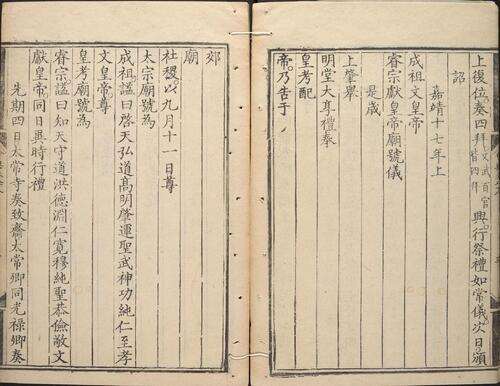 上復位奏四拜文武百官皆四拜興行祭禮如常儀次日頒
詔
嘉靖十七年上
成祖文皇帝
睿宗獻皇帝廟號儀
是歲
上肇舉
明堂大享禮奉
皇考配
帝乃告于
郊
廟
社稷以九月十一日尊
太宗廟號為
成祖諡曰啓天弘道高明肇運聖武神功純仁至孝
文皇帝尊
皇考廟號為
睿宗諡曰知天守道洪德淵仁寬穆純聖恭儉敬文
獻皇帝同日異時行禮
先期四日太常寺奏致齋太常卿同光祿卿奏